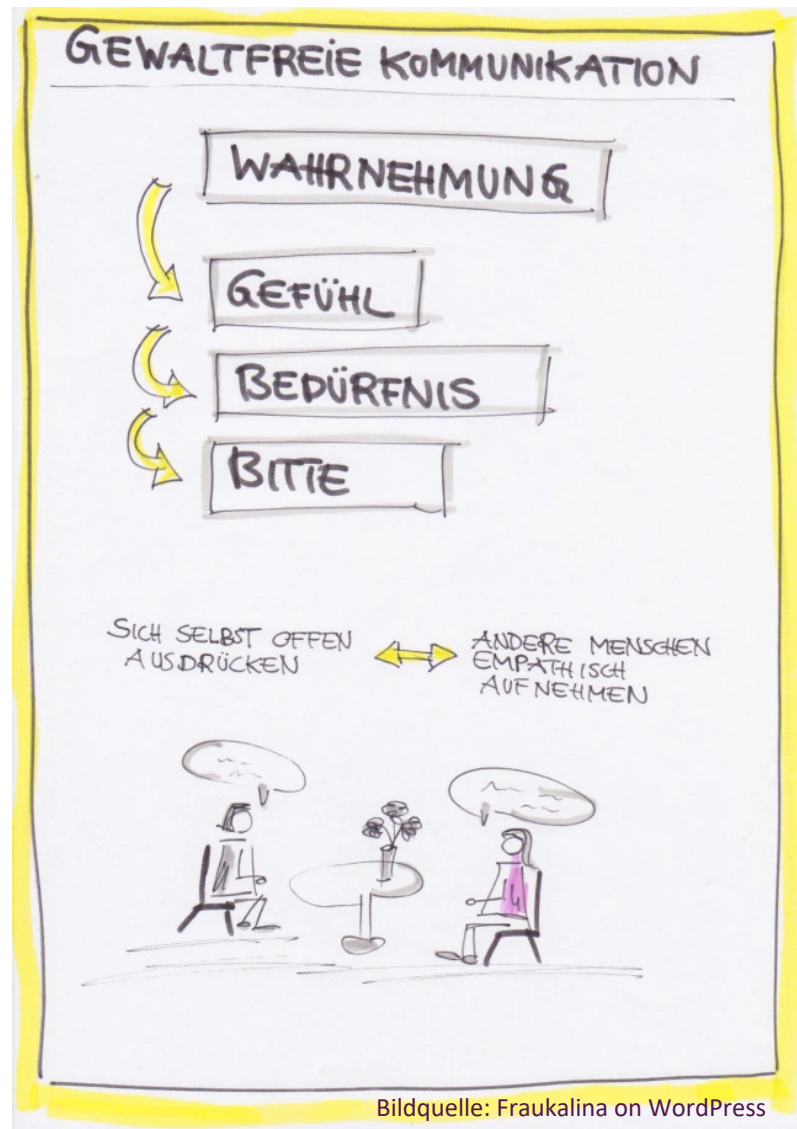 GEWALTFREIE KOMMUNIKATION
WAHRNEHMUNG
GEFÜHL
BEDÜRFNIS
BITTE
SICH SELBST OFFEN
AUSDRÜCKEN
ANDERE MENSCHEN
EMPATHISCH
AUFNEHMEN
Bildquelle: Fraukalina on WordPress